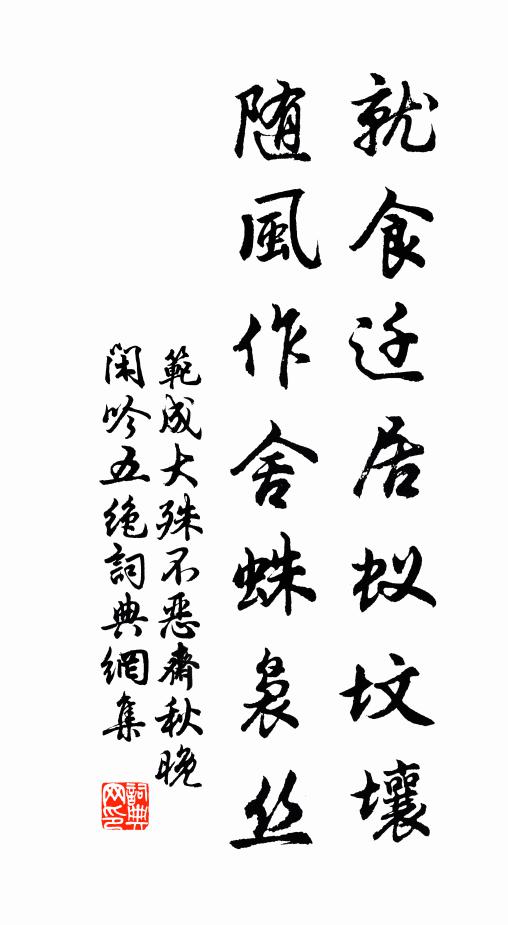 就食迁居蚁坟壤
随風作舍蛛袅丝
範成大殊不惡齋秋晚
閑吟五絶詞典網集
詞典网印